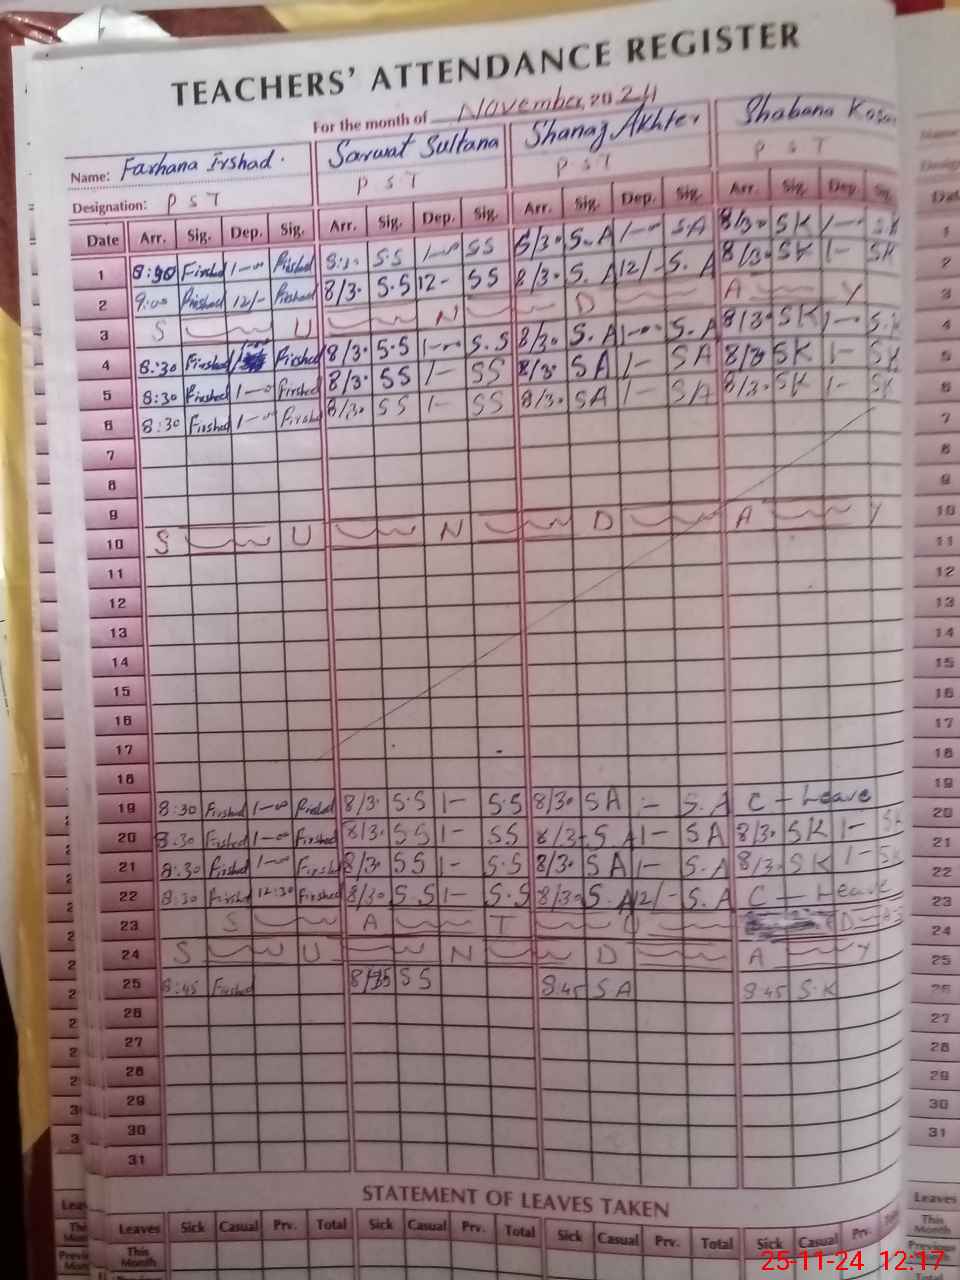 TEACHERS' ATTENDANCE REGISTER
For the month of November, 2024
Name: Farhana Irshad. Sarwat Sultana Shanaz Akhter Shabana
Designation: P S T P S T P S T P S T
Date Arr. Sig. Dep. Sig. Arr. Sig. Dep. Sig. Arr. Sig. Dep. Sig. Arr. Sig. Dep. Sig.
1 8:30 Firshed 1-00 Firshed S.S 1-00 SS 8/30 S.A 1-00 SA 8/30 SK 1-00 SK
2 9:00 Firshed 12/- Firshed 8/30 S.S 12- SS 8/30 S.A 12/- S.A 8/30 SK 1- SK
3 S U N D A Y
4 8:30 Firshed Firshed 8/30 S.S 1-00 S.S 8/30 S.A 1-00 S.A 8/30 SK 1-00 S.K
5 8:30 Firshed 1-00 Firshed 8/30 SS 1- SS 8/30 SA 1- SA 8/30 SK 1- SK
6 8:30 Firshed 1-00 Firshed 8/30 SS 1- SS 8/30 SA 1- SA 8/30 SK 1- SK
7
8
9
10 S U N D A Y
11
12
13
14
15
16
17
18
19 8:30 Firshed 1-00 Firshed 8/30 S.S 1- S.S 8/30 SA :- S.A C - Leave
20 8:30 Firshed 1-00 Firshed 8/30 S.S 1- SS 8/30 S.A 1- SA 8/30 SK 1- SK
21 8:30 Firshed 1-00 Firshed 8/30 SS 1- S.S 8/30 SA 1- S.A 8/30 SK 1- SK
22 8:30 Firshed 12:30 Firshed 8/30 S.S 1- S.S 8/30 S.A 12/- S.A C - Leave
23 S A T
24 S U N D A Y
25 8:45 Firshed SS 8 45 SA 8 45 S.K
26
27
28
29
30
31
STATEMENT OF LEAVES TAKEN
Leaves Sick Casual Prv. Total Sick Casual Prv. Total Sick Casual Prv. Total Sick Casual
This Month
Previous
25-11-24 12:17